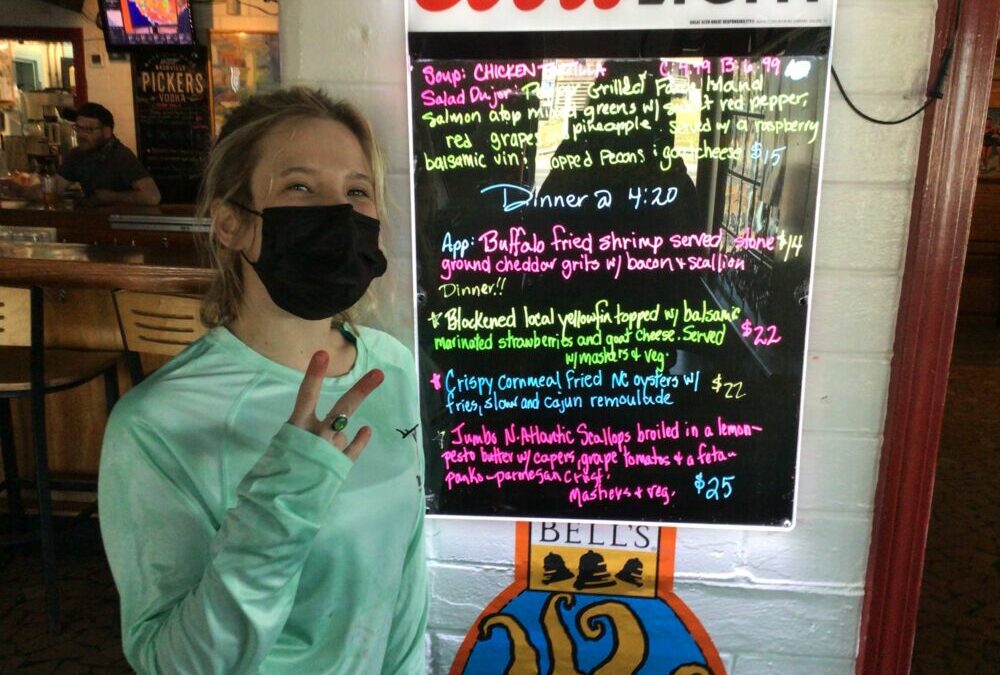 PICKERS
VODKA
Coors LIGHT
GREAT BEER GREAT RESPONSIBILITY
Soup: CHICKEN C: 4.99 B: 6.99
Salad Dujor: Grilled Faroe Island
Salmon atop mixed greens w/ sweet red pepper,
red grapes pineapple. Served w/ a raspberry
balsamic vin; chopped pecans i goat cheese $15
Dinner @ 4:20
App: Buffalo fried shrimp served stone $14
ground cheddar grits w/ bacon + scallion
Dinner!!
Blackened local yellowfin topped w/ balsamic
marinated strawberries and goat cheese. Served $22
w/ mashers & veg.
Crispy Cornmeal Fried NC oysters w/ $22
fries, slaw and cajun remoulade
Jumbo N. Atlantic Scallops broiled in a lemon-
pesto butter w/ capers, grape tomatos & a feta-
panko-parmesan crust.
Mashers + veg. $25
BELL'S